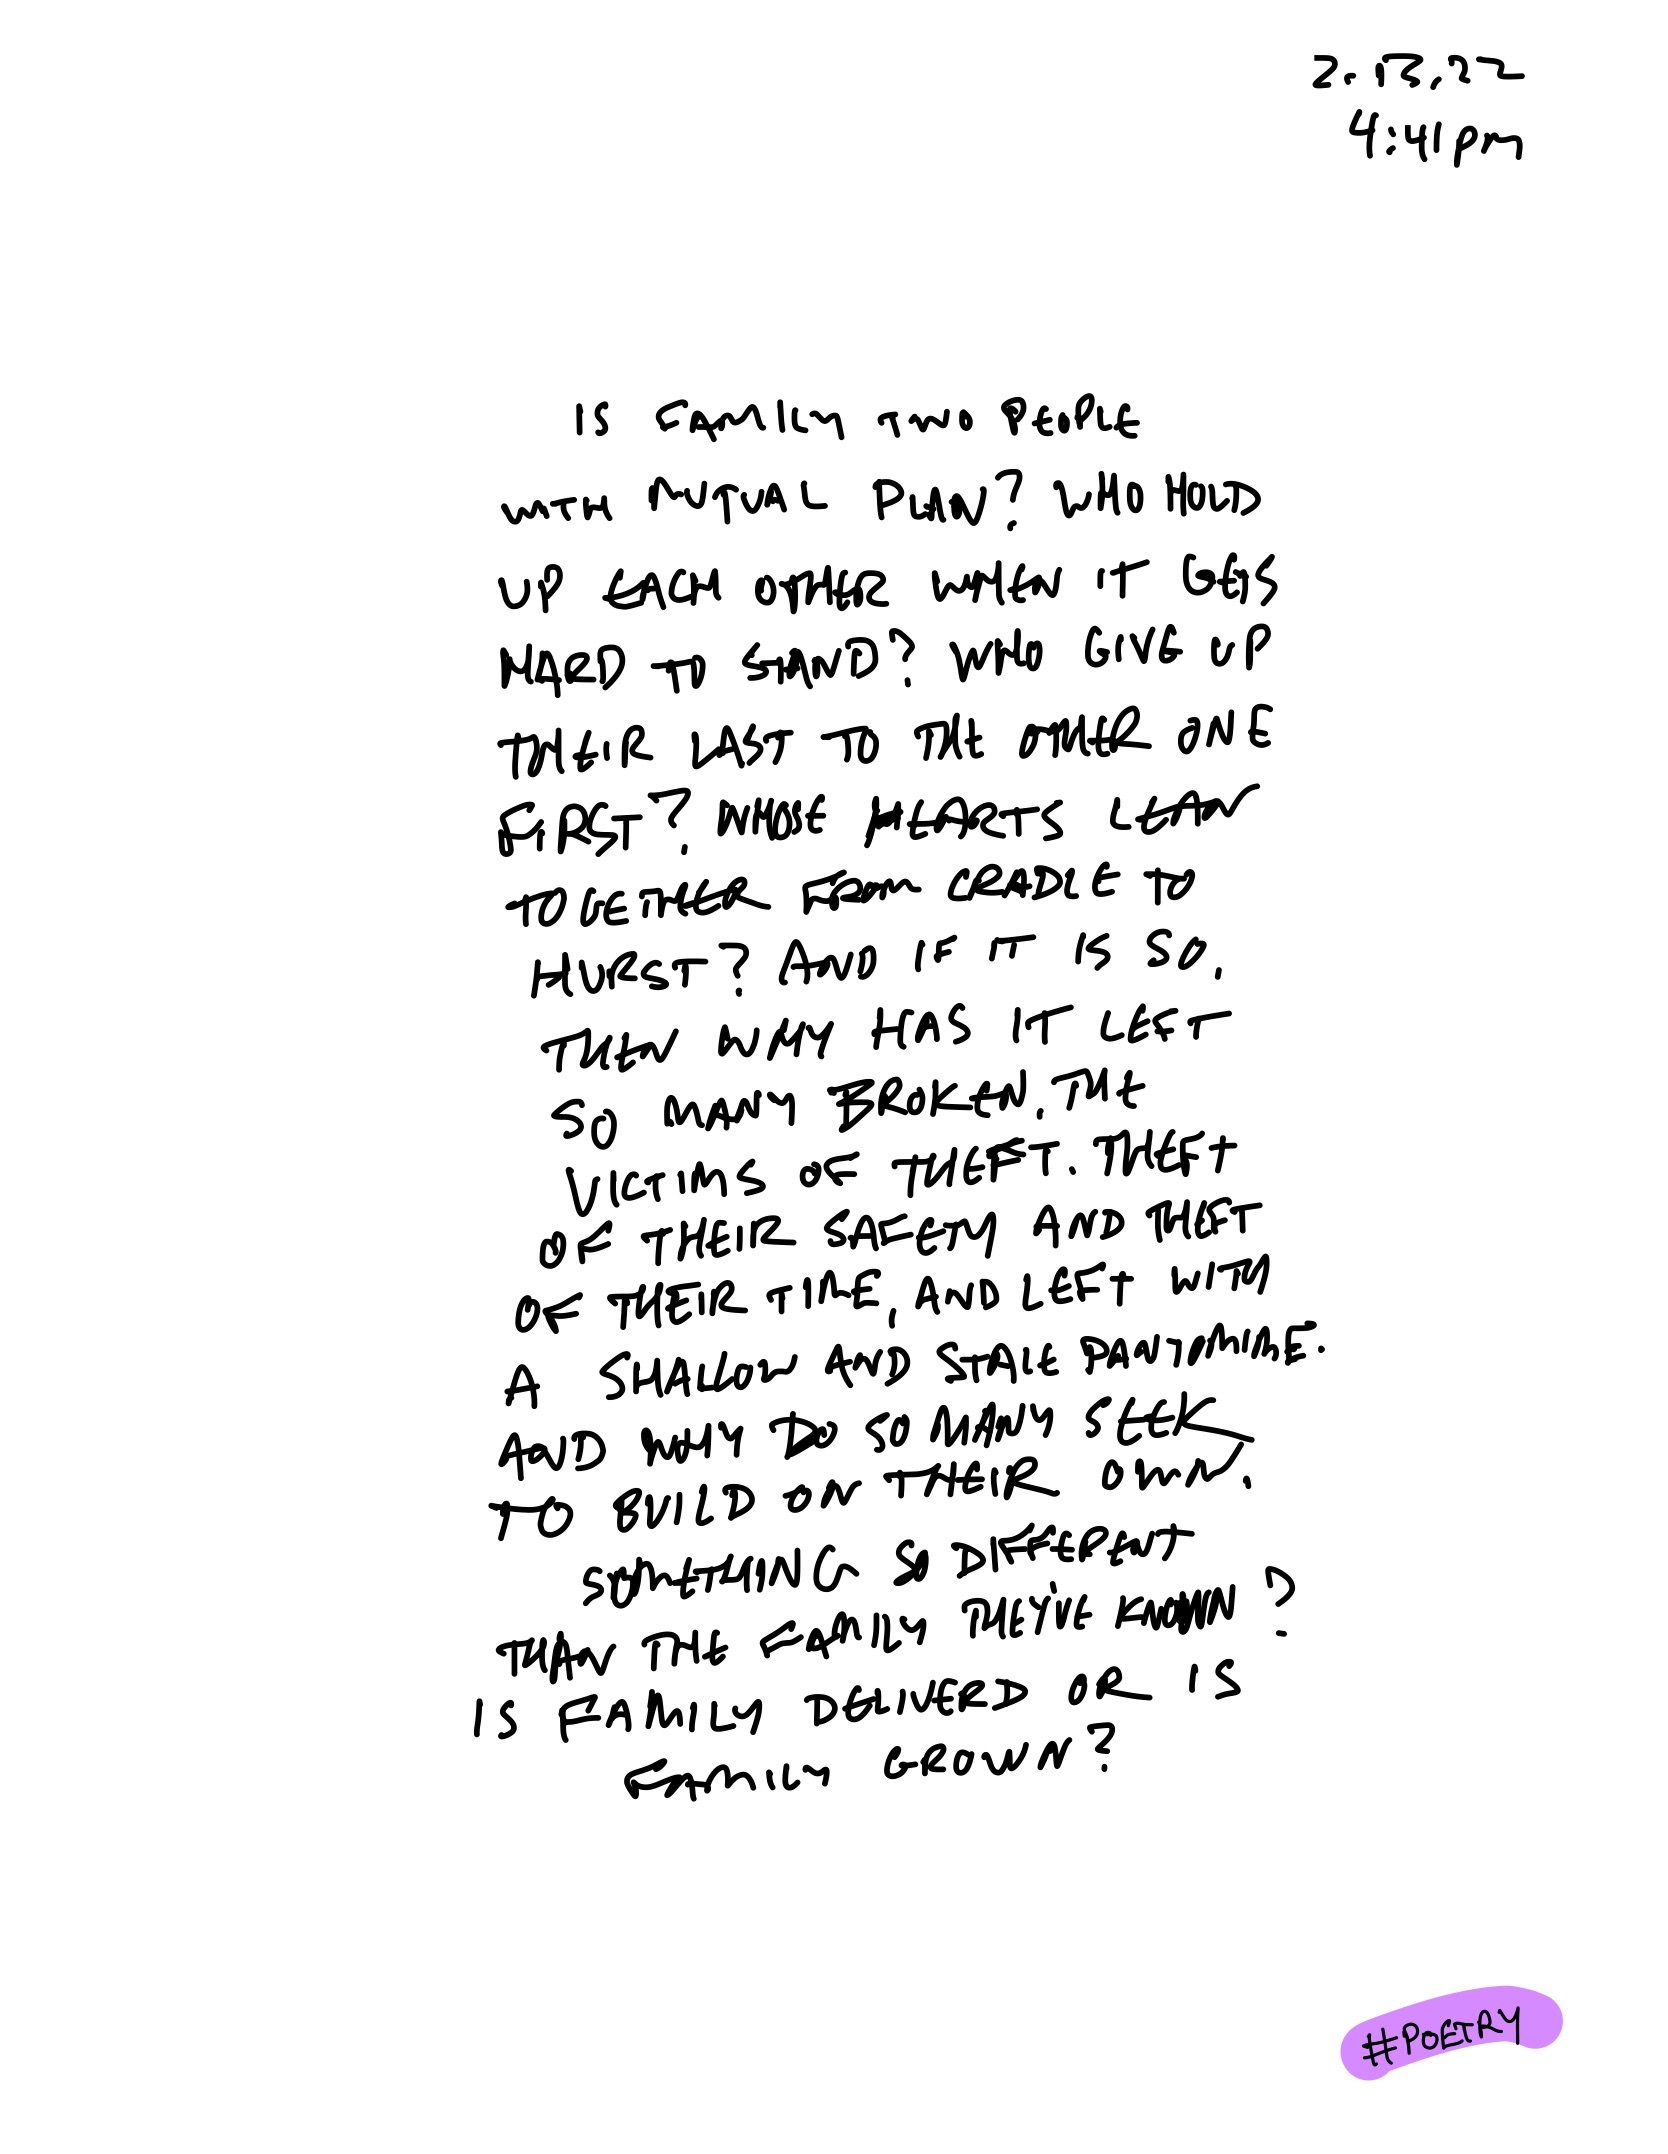 2.13.22
4:41pm
IS FAMILY TWO PEOPLE
WITH MUTUAL PLAN? WHO HOLD
UP EACH OTHER WHEN IT GETS
HARD TO STAND? WHO GIVE UP
THEIR LAST TO THE OTHER ONE
FIRST? WHOSE HEARTS LEAN
TOGETHER FROM CRADLE TO
HURST? AND IF IT IS SO,
THEN WHY HAS IT LEFT
SO MANY BROKEN, THE
VICTIMS OF THEFT. THEFT
OF THEIR SAFETY AND THEFT
OF THEIR TIME, AND LEFT WITH
A SHALLOW AND STALE PANTOMIME.
AND WHY DO SO MANY SEEK
TO BUILD ON THEIR OWN,
SOMETHING SO DIFFERENT
THAN THE FAMILY THEY'VE KNOWN?
IS FAMILY DELIVERD OR IS
FAMILY GROWN?
#POETRY